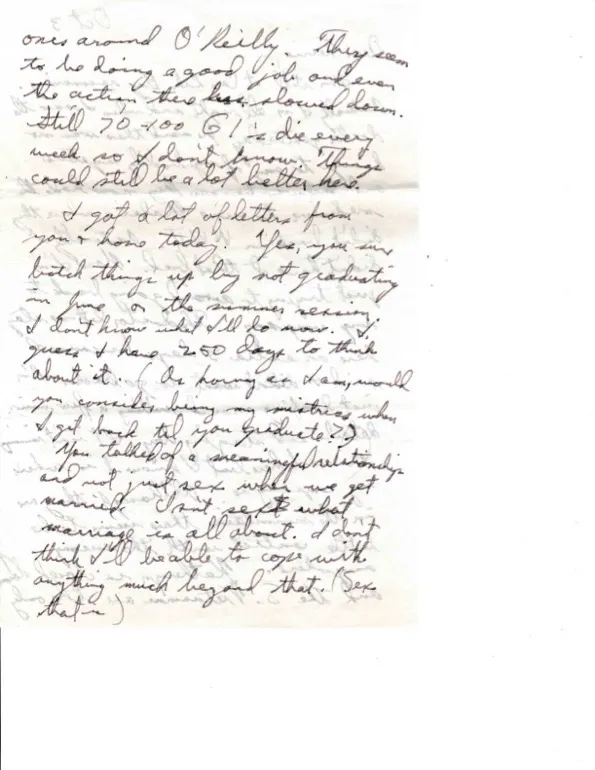 ones around O'Reilly. They seem
to be doing a good job and even
the action there has slowed down.
Still 70-100 GI's die every
week so I don't know. Things
could still be a lot better here.
I got a lot of letters from
you & home today. Yes, you sure
botch things up by not graduating
in June or the summer session,
I don't know what I'll do now. I
guess I have 250 days to think
about it. (As horny as I am, would
you consider being my mistress when
I get back til you graduate??)
You talked of a meaningful relationship
and not just sex when we get
married. Isn't sex what
marriage is all about. I don't
think I'll be able to cope with
anything much beyond that. (Sex
that is)